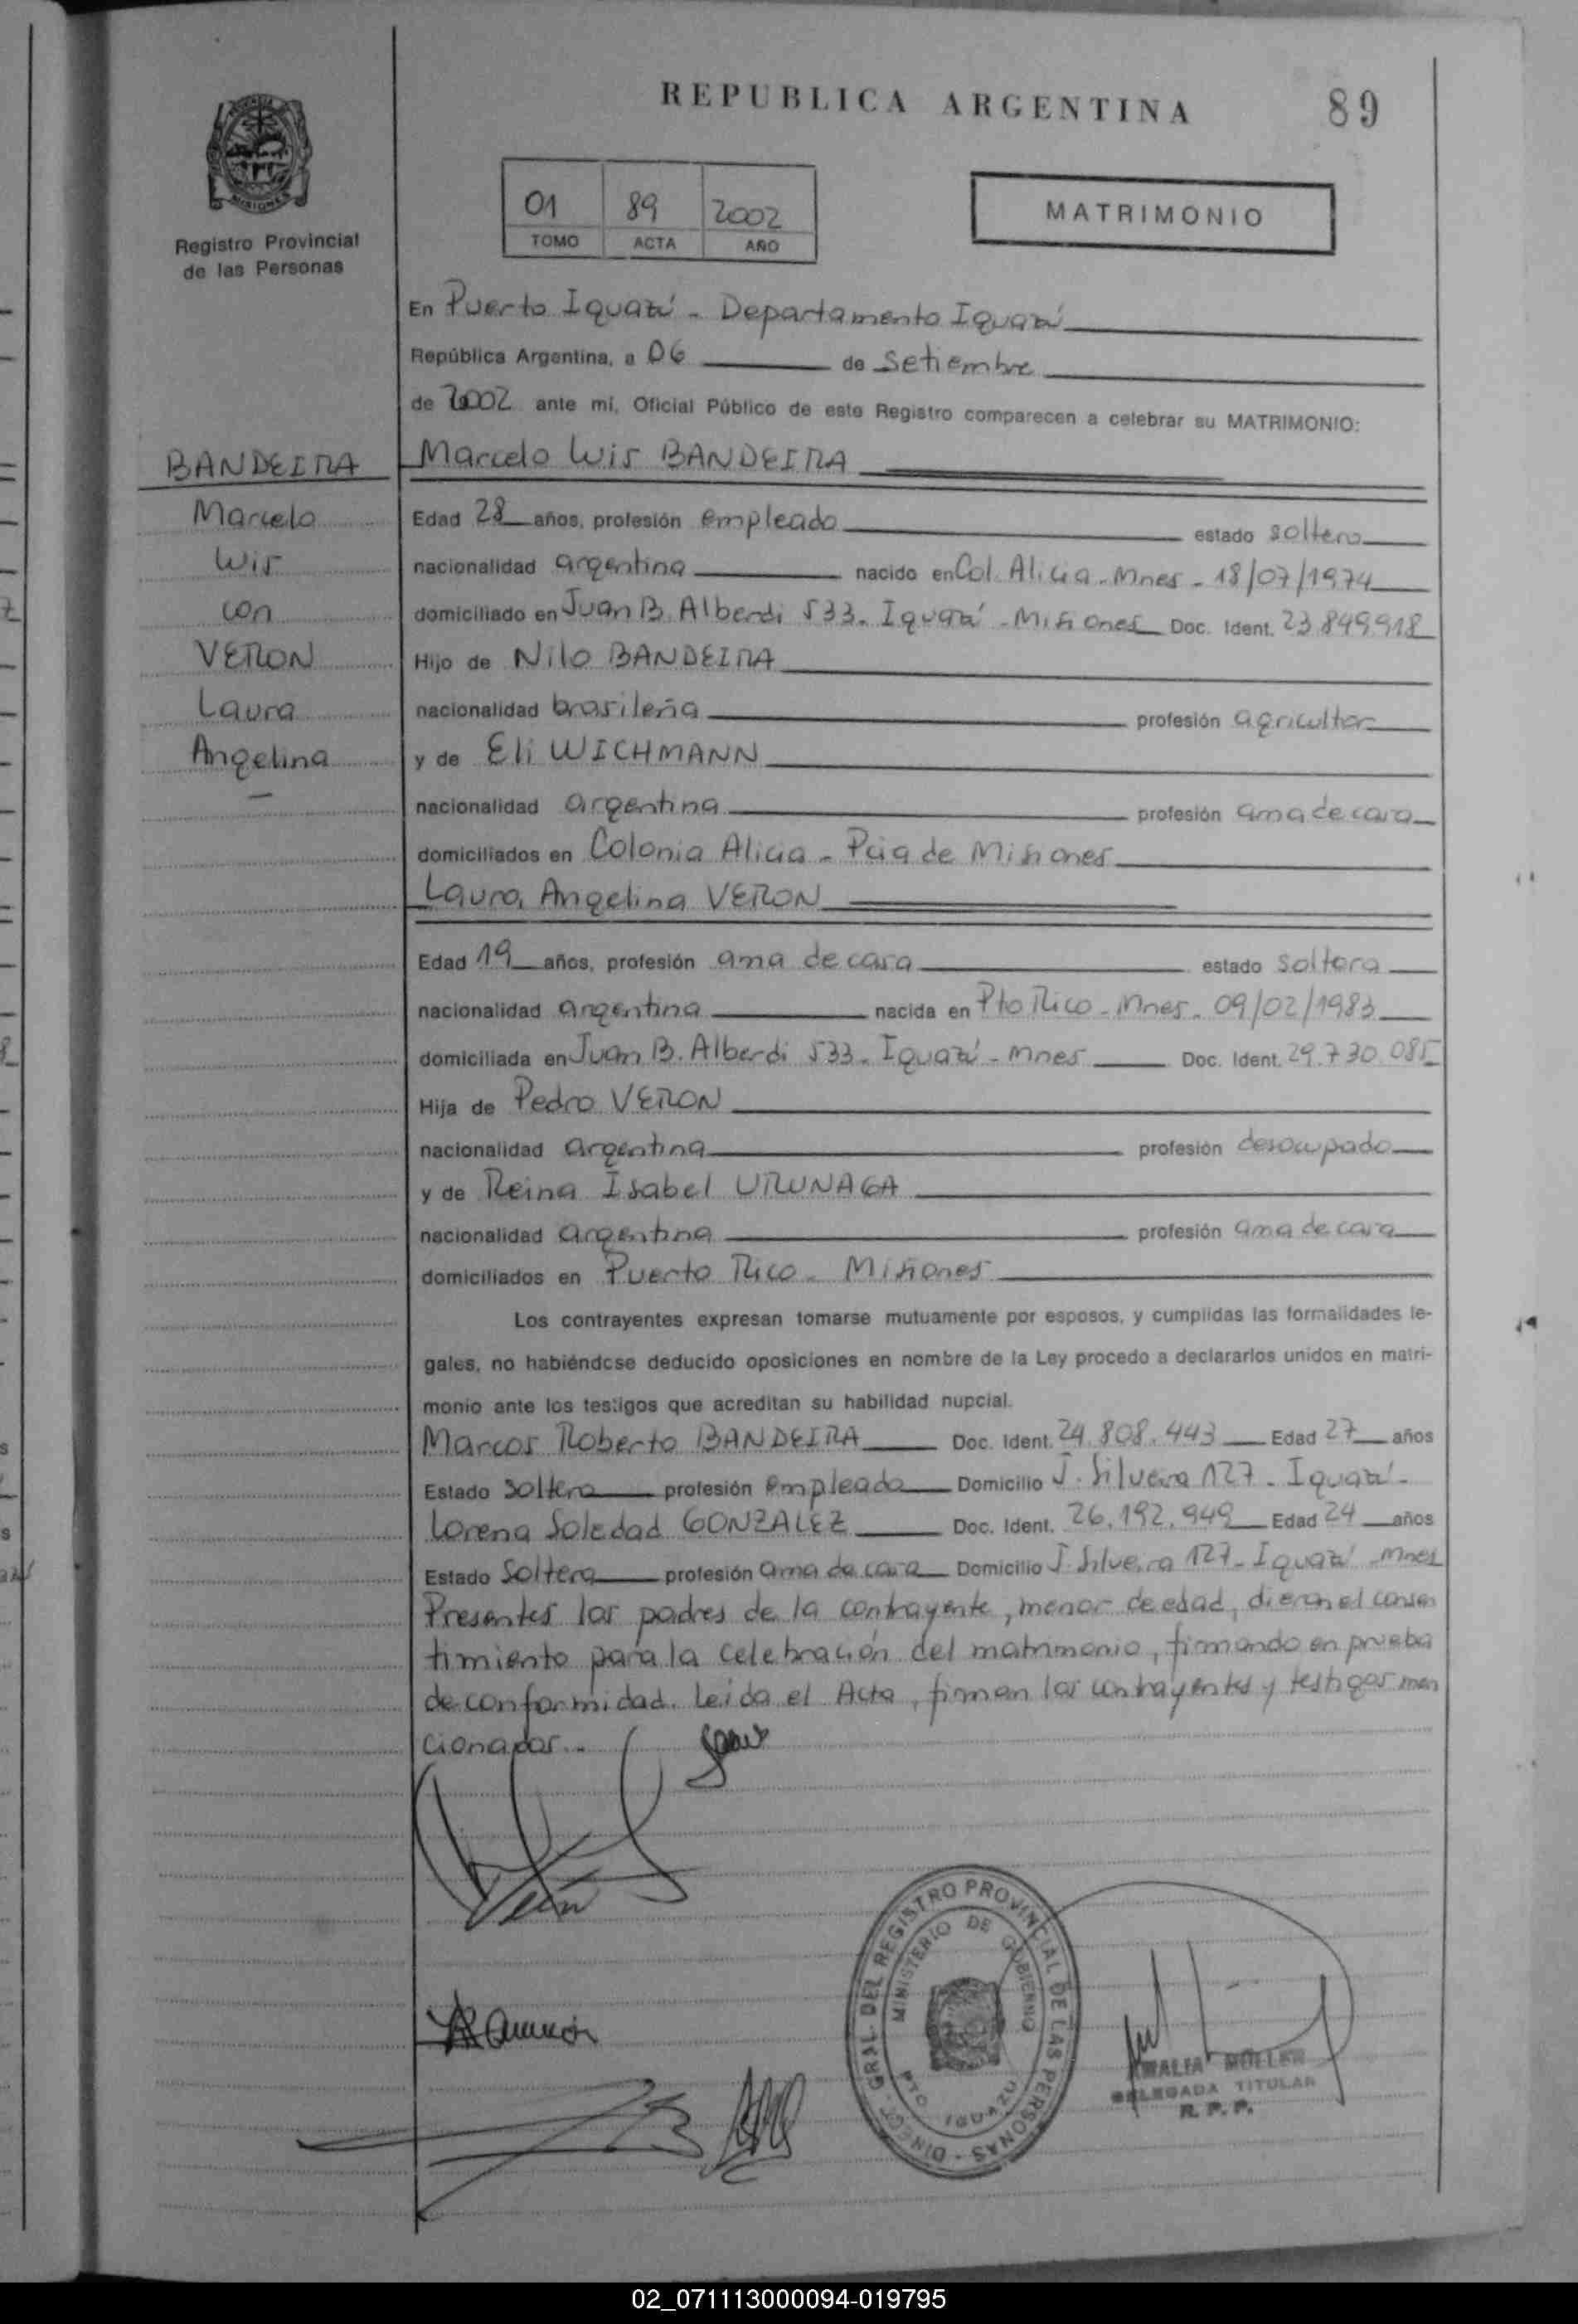 REPUBLICA ARGENTINA
89
MISIONES
Registro Provincial
de las Personas
01 89 2002
TOMO ACTA AÑO
MATRIMONIO
En Puerto Iguazú - Departamento Iguazú
República Argentina, a 06 de Setiembre
de 2002 ante mí, Oficial Público de este Registro comparecen a celebrar su MATRIMONIO:
BANDEIRA
Marcelo
Luis
con
VERON
Laura
Angelina
Marcelo Luis BANDEIRA
Edad 28 años, profesión empleado estado soltero
nacionalidad argentina nacido en Col. Alicia - Mnes - 18/07/1974
domiciliado en Juan B. Alberdi 533 - Iguazú - Misiones Doc. Ident. 23.849.918
Hijo de Nilo BANDEIRA
nacionalidad brasileña profesión agricultor
y de Eli WICHMANN
nacionalidad argentina profesión ama de casa
domiciliados en Colonia Alicia - Pcia de Misiones
Laura Angelina VERON
Edad 19 años, profesión ama de casa estado soltera
nacionalidad argentina nacida en Pto Rico - Mnes - 09/02/1983
domiciliada en Juan B. Alberdi 533 - Iguazú - Mnes Doc. Ident. 29.730.085
Hija de Pedro VERON
nacionalidad argentina profesión desocupado
y de Reina Isabel URUNAGA
nacionalidad argentina profesión ama de casa
domiciliados en Puerto Rico - Misiones
Los contrayentes expresan tomarse mutuamente por esposos, y cumplidas las formalidades le-
gales, no habiéndose deducido oposiciones en nombre de la Ley procedo a declararlos unidos en matri-
monio ante los testigos que acreditan su habilidad nupcial.
Marcos Roberto BANDEIRA Doc. Ident. 24.808.443 Edad 27 años
Estado soltero profesión empleado Domicilio J. Silveira 127 - Iguazú -
Lorena Soledad GONZALEZ Doc. Ident. 26.192.949 Edad 24 años
Estado soltera profesión ama de casa Domicilio J. Silveira 127 - Iguazú - Mnes
Presentes los padres de la contrayente, menor de edad, dieron el consen
timiento para la celebración del matrimonio, firmando en prueba
de conformidad. Leída el Acta, firman los contrayentes y testigos men
cionados.-
DIREC. GRAL. DEL REGISTRO PROVINCIAL DE LAS PERSONAS
MINISTERIO DE GOBIERNO
PTO IGUAZU
AMALIA MULLER
DELEGADA TITULAR
R. P. P.
02_071113000094-019795